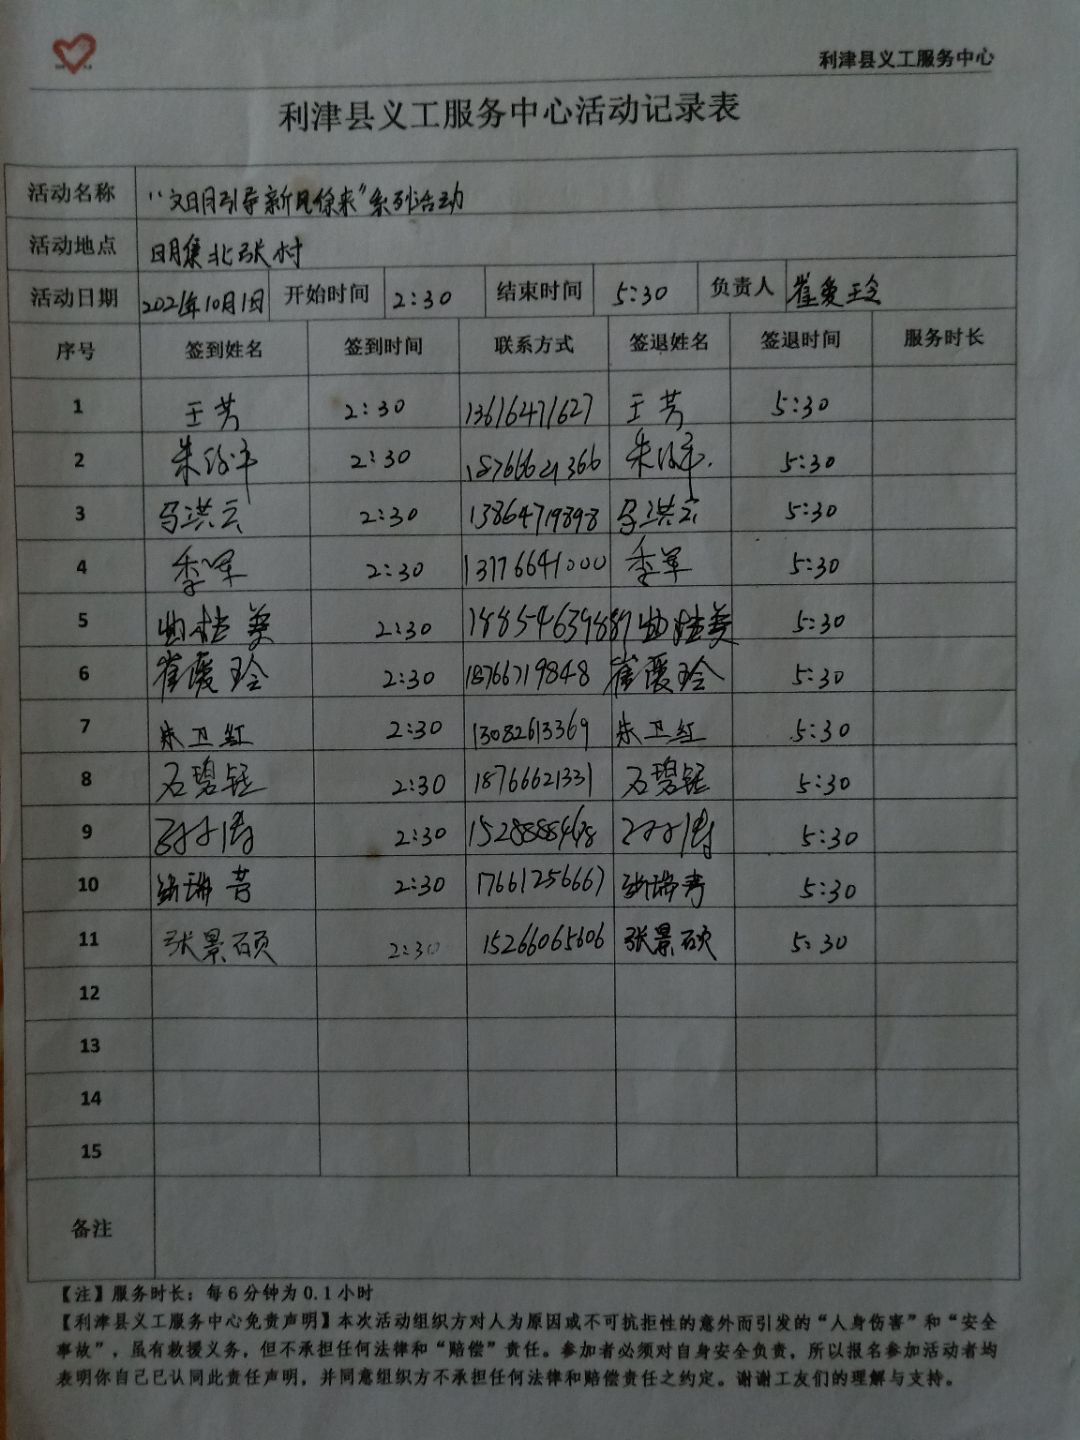 利津县义工服务中心
利津县义工服务中心活动记录表
活动名称 “文明引导新风徐来”系列活动
活动地点 明集北张村
活动日期 2021年10月1日 开始时间 2:30 结束时间 5:30 负责人 崔爱玲
序号 签到姓名 签到时间 联系方式 签退姓名 签退时间 服务时长
1 王芳 2:30 13616471627 王芳 5:30
2 朱 2:30 18766621366 朱 5:30
3 马洪云 2:30 13864719898 马洪云 5:30
4 季军 2:30 13776641000 季军 5:30
5 2:30 5:30
6 崔爱玲 2:30 18766719848 崔爱玲 5:30
7 朱卫红 2:30 13082613369 朱卫红 5:30
8 石碧钰 2:30 18766621331 石碧钰 5:30
9 2:30 5:30
10 2:30 17661256667 5:30
11 张景硕 2:30 15266065606 张景硕 5:30
12
13
14
15
备注
【注】服务时长：每6分钟为0.1小时
【利津县义工服务中心免责声明】本次活动组织方对人为原因或不可抗拒性的意外而引发的“人身伤害”和“安全
事故”，虽有救援义务，但不承担任何法律和“赔偿”责任。参加者必须对自身安全负责，所以报名参加活动者均
表明你自己已认同此责任声明，并同意组织方不承担任何法律和赔偿责任之约定。谢谢工友们的理解与支持。